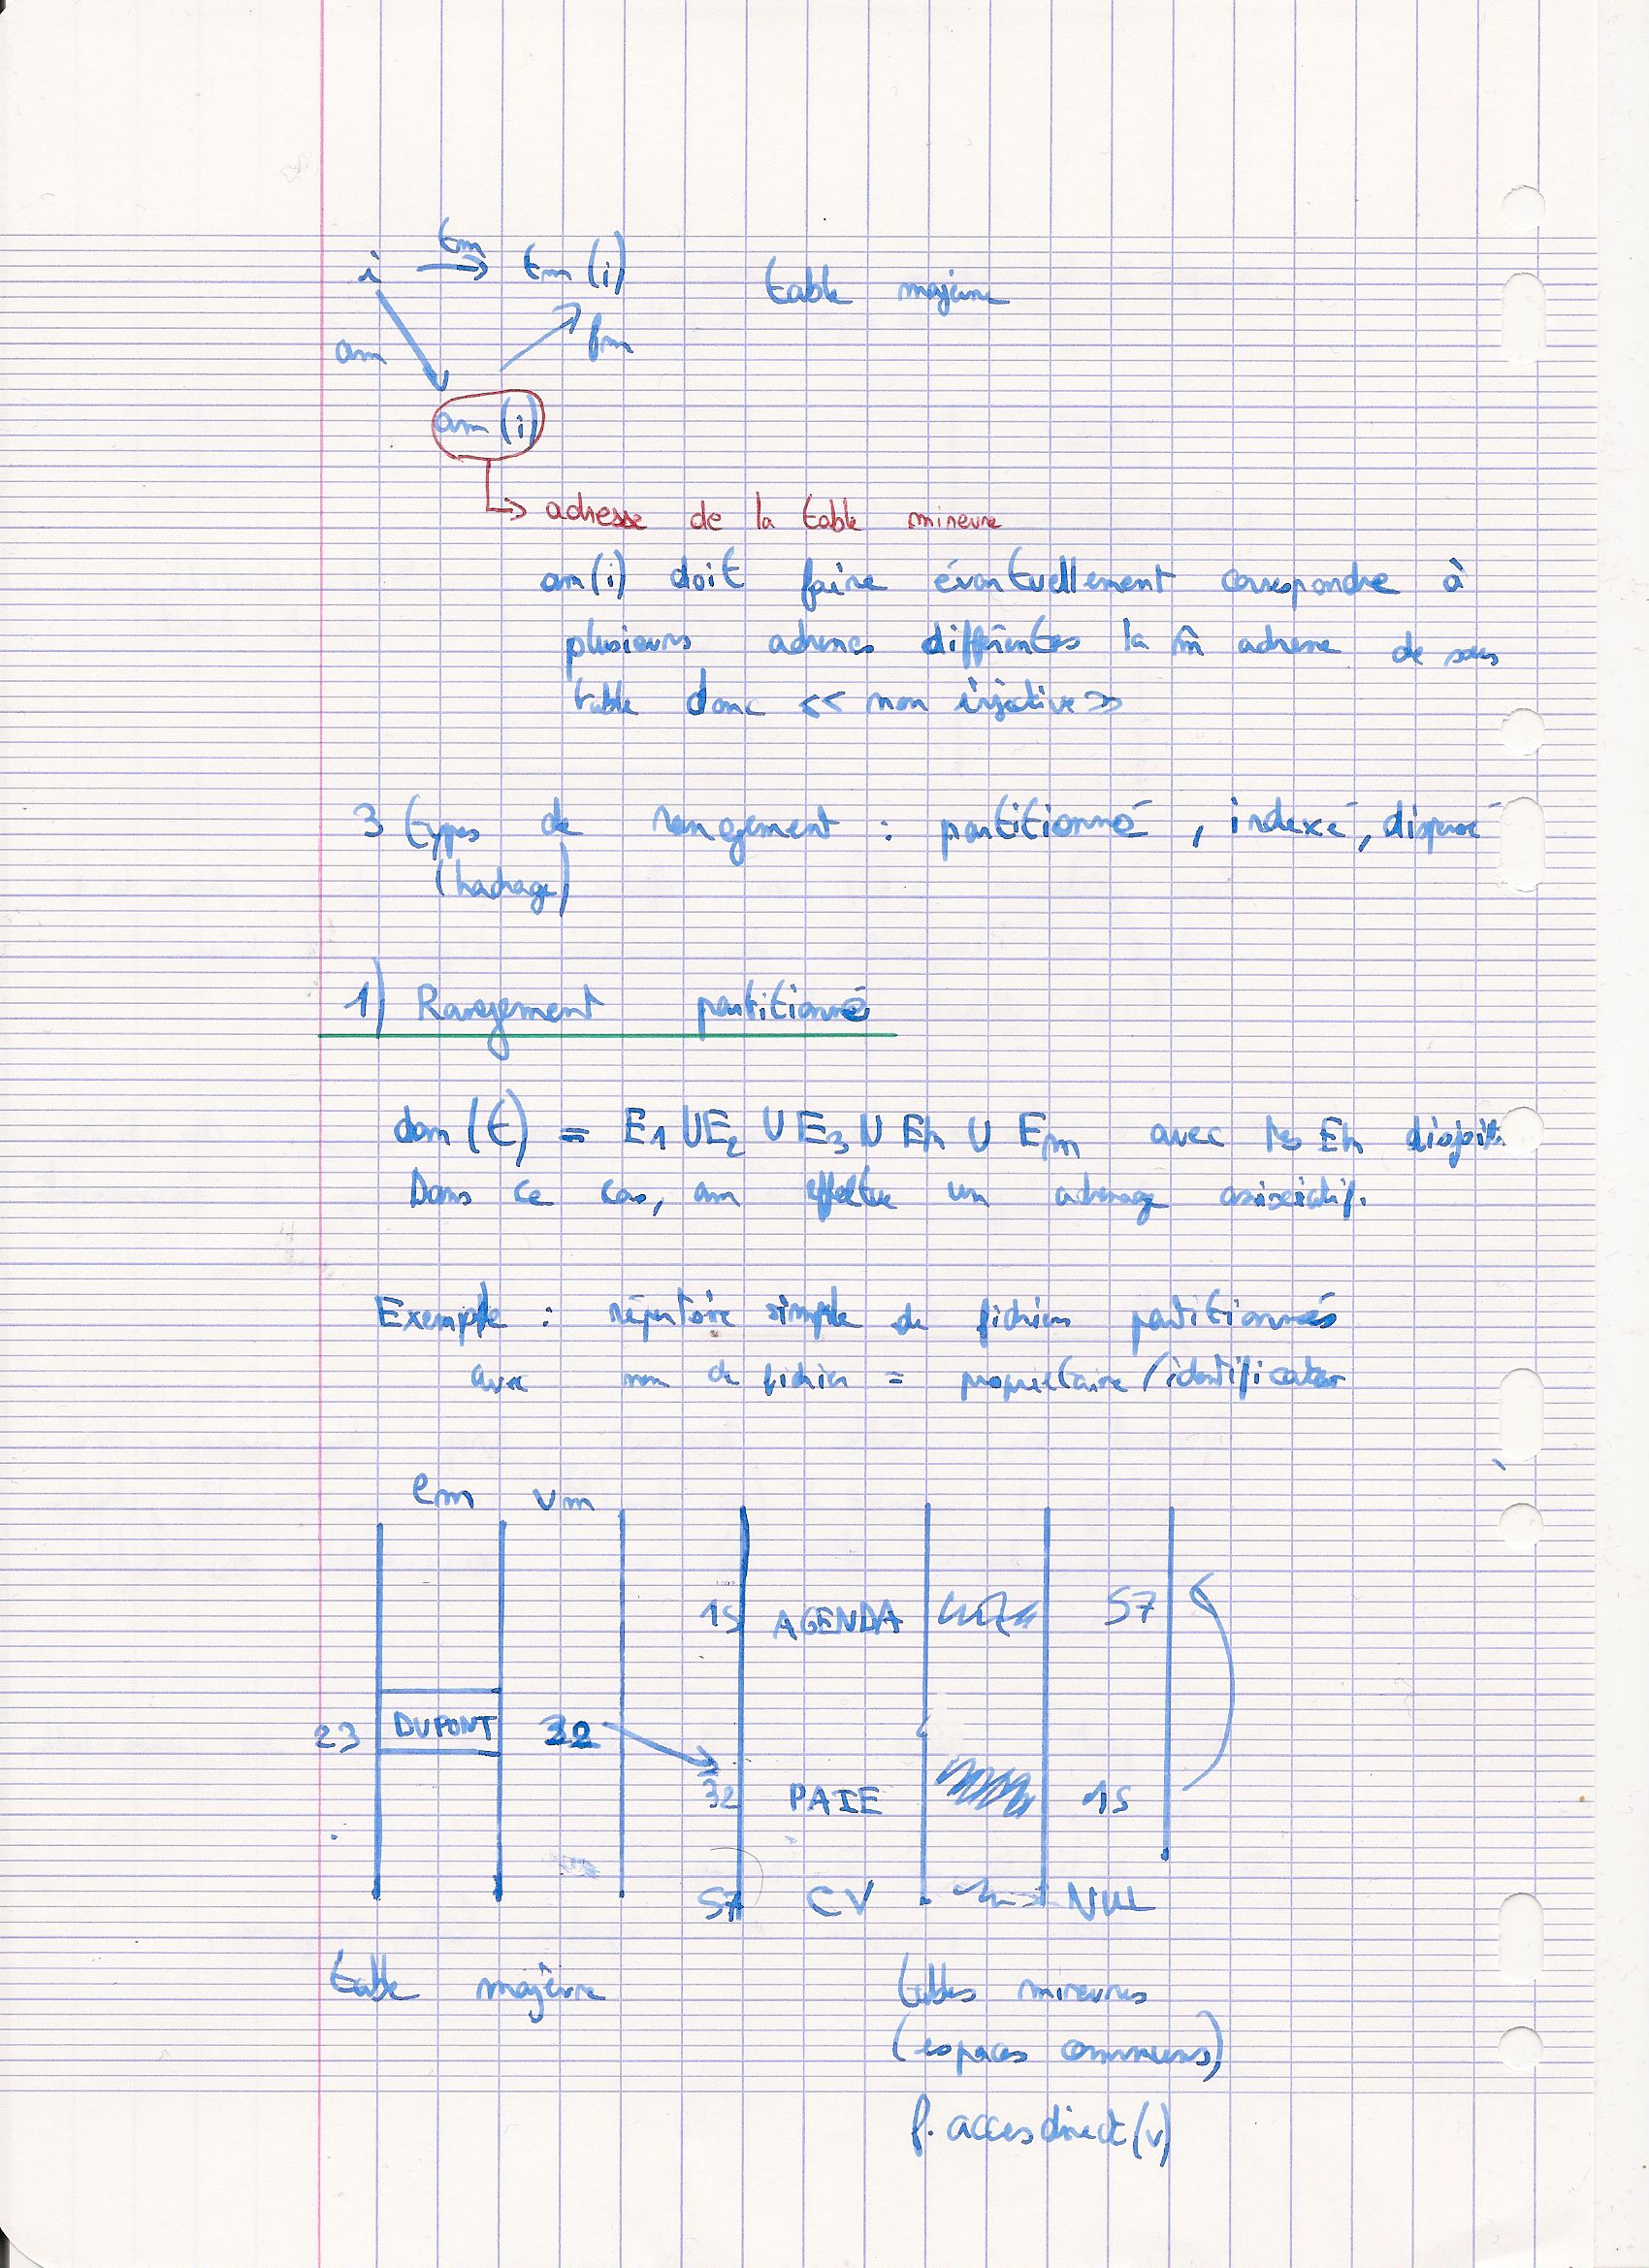 tm
i → tm (i) table majeure
am fm
am (i)
↳ adresse de la table mineure
am(i) doit faire éventuellement correspondre à
plusieurs adresses différentes la m̂ adresse de sous
table donc << non injective >>
3 types de rangement : partitionné, indexé, dispersé
(hachage)
1) Rangement partitionné
dom (t) = E1 U E2 U E3 U Eh U Em avec les Eh disjoints
Dans ce cas, am effectue un adressage associatif.
Exemple : répertoire simple de fichiers partitionnés
avec nom de fichier = propriétaire / identificateur
em vm
15 AGENDA 57
23 DUPONT 32
32 PAIE 15
57 CV NUL
table majeure tables mineures
(espaces communs)
f. acces direct (v)